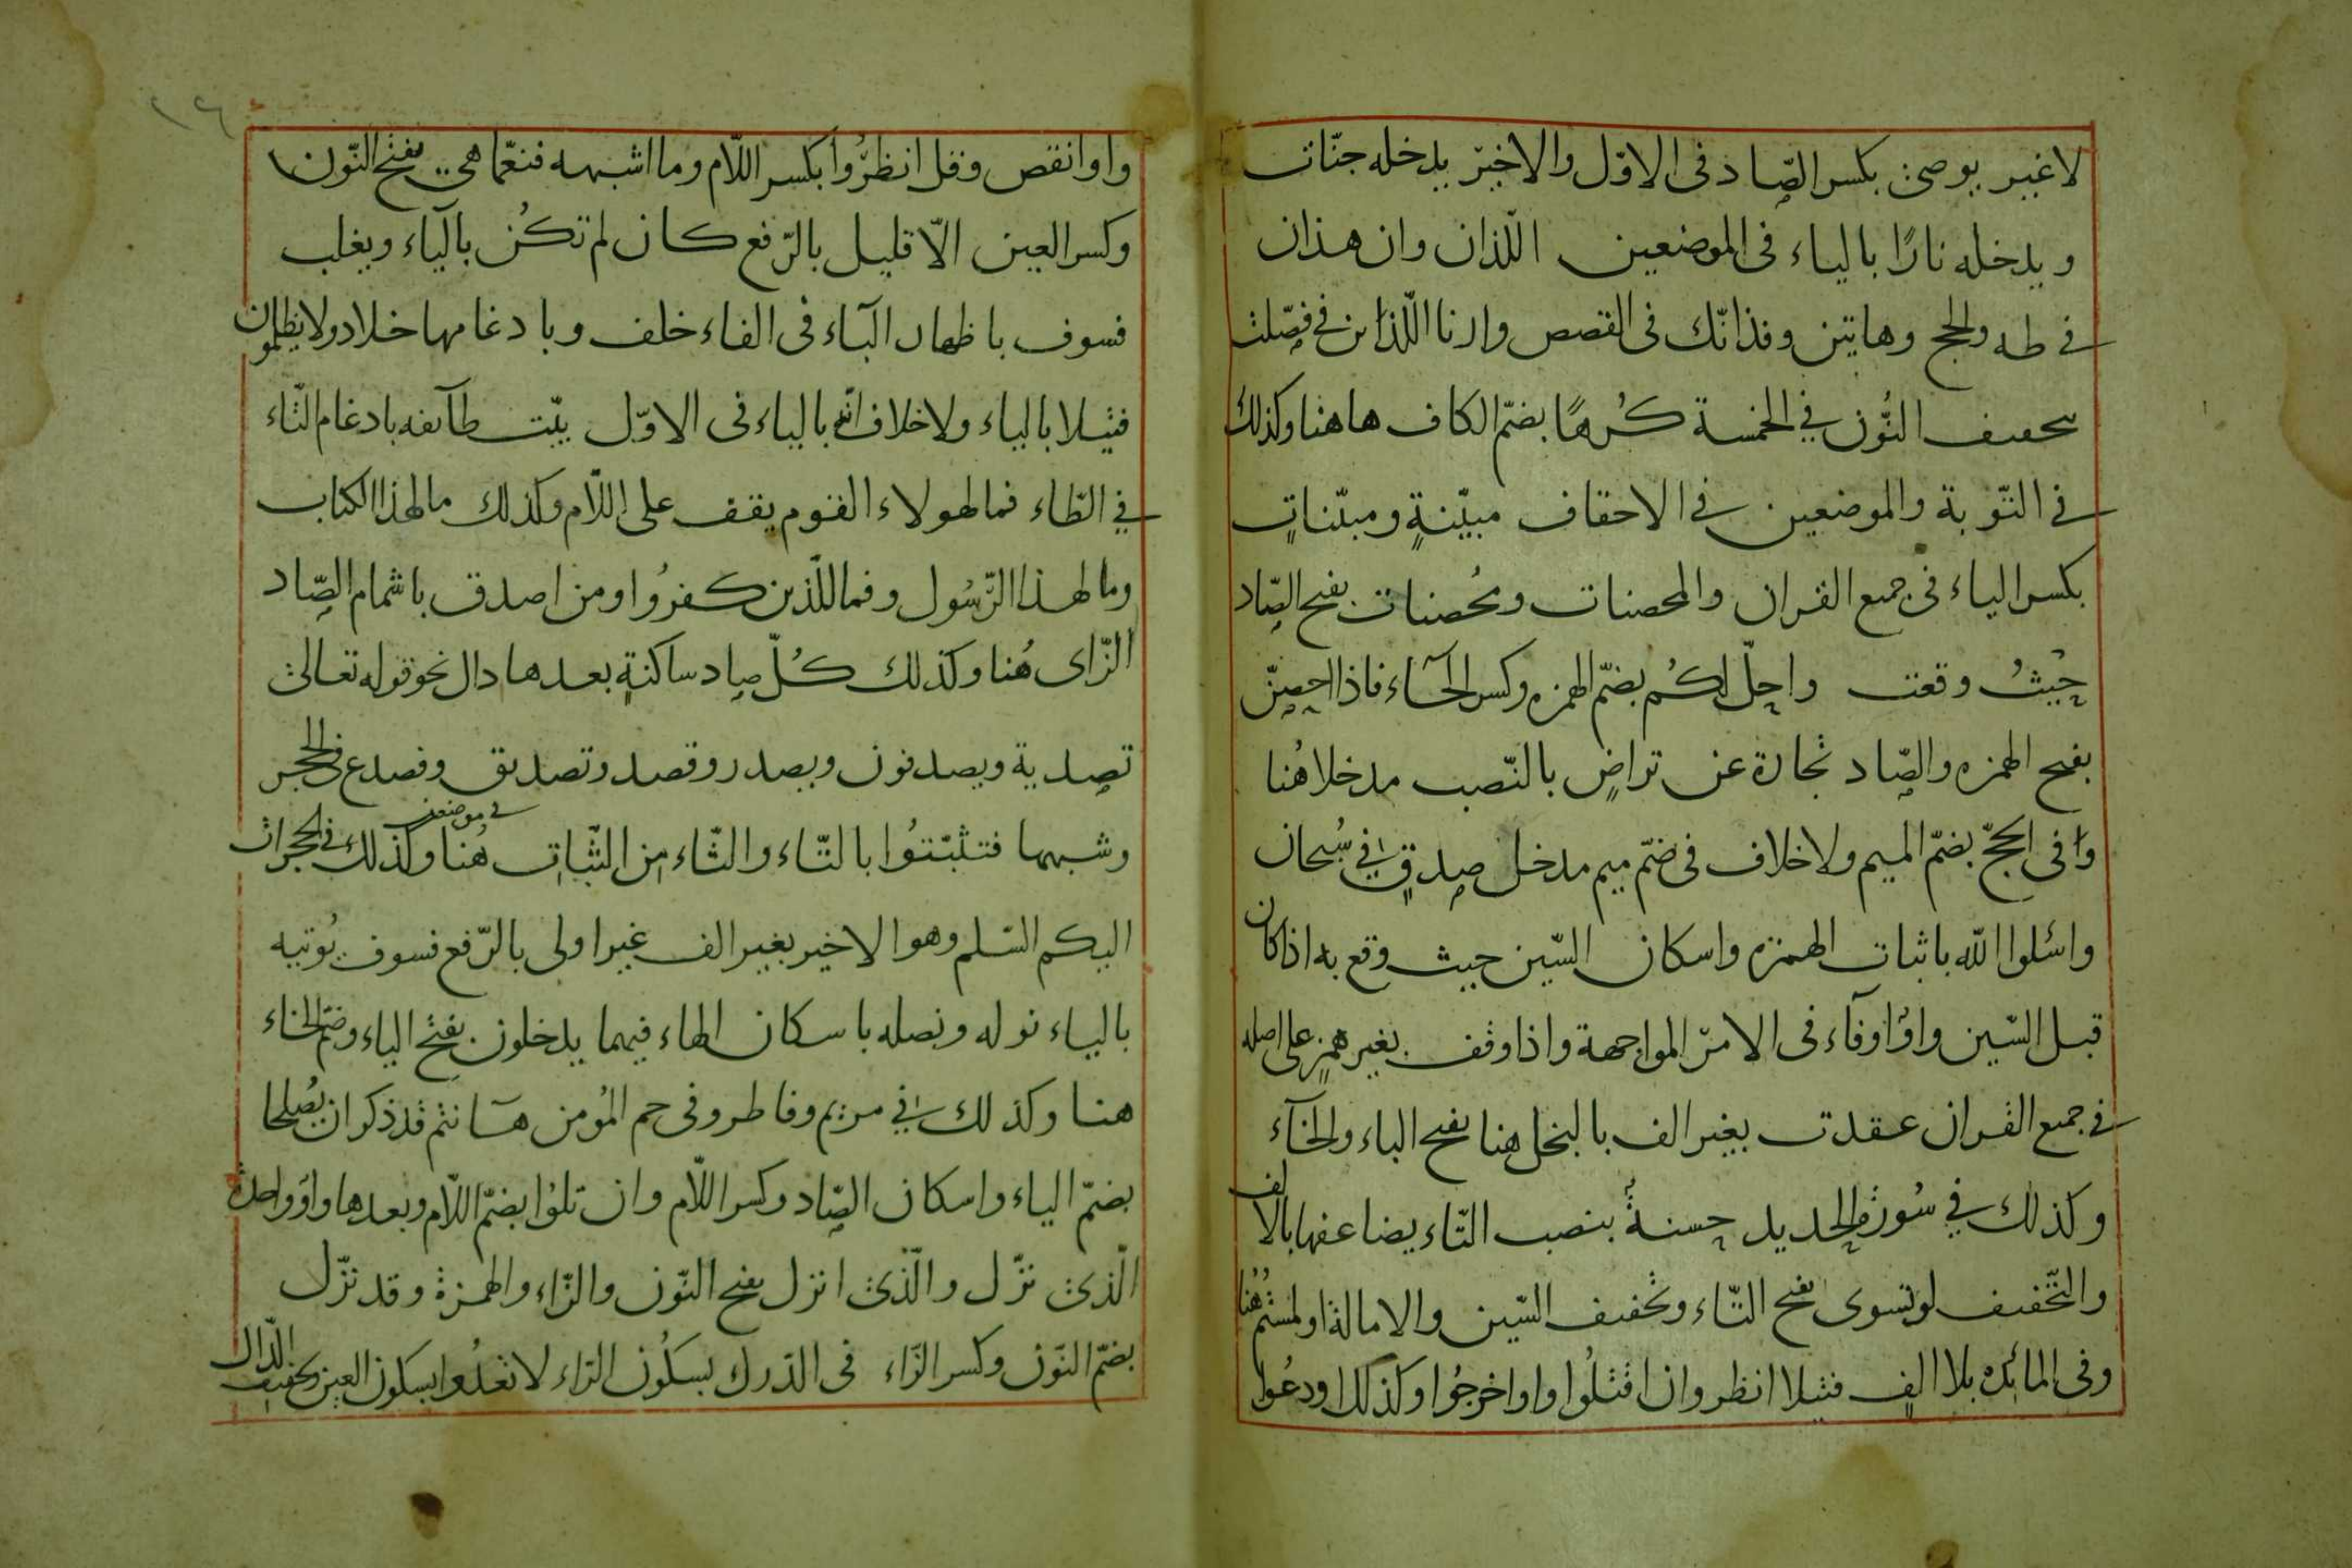 لاغير يوصى بكسر الصّاد فى الاوّل والاخير يدخله جنّات
ويدخله نارًا بالياء فى الموضعين اللّذان وان هذان
فى طه والحج وهاتين وفذانّك فى القصص وارنا اللّذان فى فصّلت
بتخفيف النُّون فى الخمسة كُرهًا بضمّ الكاف هاهنا وكذلك
فى التّوبة والموضعين فى الاحقاف مبيّنةٍ ومبيّناتٍ
بكسر الياء فى جميع القران والمحصنات ومُحصنات بفتح الصّاد
حيثُ وقعت واحلّ لكُم بضمّ الهمزه وكسر الحآء فاذا احصنّ
بفتح الهمزه والصّاد تجارة عن تراضٍ بالنّصب مدخلا هُنا
وفى الحجّ بضمّ الميم ولاخلاف فى ضمّ ميم مدخل صدقٍ فى سُبحان
واسئلوا الله باثبات الهمزه واسكان السّين حيث وقع به اذا كان
قبل السّين واوًا وفآء فى الامر المواجهة واذا وقف بغير همزٍ على اصله
فى جميع القران عقدت بغير الف بالبخل هنا بفتح الباء والخآء
وكذلك فى سُورة الحديد حسنةً بنصب التّاء يضاعفها بالالف
والتّخفيف لو تسوى بفتح التّاء وتخفيف السّين والامالة او لمستم هُنا
وفى المائده بلا الفٍ فتيلا انظر وان اقتلُوا واو اخرجُوا وكذلك اودعُوا
واو انقص وقل انظرُوا بكسر اللّام وما اشبهه فنعّما هى بفتح النّون
وكسر العين الّا قليل بالرّفع كان لم تكُن بالياء ويغلب
فسوف باظهار الباء فى الفاء خلف وبادغامها خلاد ولا يظلمون
فتيلا بالياء ولاخلاف انّه بالياء فى الاوّل بيّت طآئفه بادغام التّاء
فى الطّاء فمالهولاء القوم يقف على اللّام وكذلك مالهذا الكتاب
ومالهذا الرّسُول وفماللّذين كفرُوا ومن اصدق باشمام الصّاد
الزّاى هُنا وكذلك كُلّ صاد ساكنةٍ بعدها دال نحو قوله تعالى
تصدية ويصدفون ويصدر وقصد وتصديق وفصدع فى الحجر
وشبهها فتثبّتُوا بالتّاء والثّاء مِن الثّبات هُنا فى موضعين وكذلك فى الحجرات
اليكم السّلم وهو الاخير بغير الف غير اولى بالرّفع فسوف يُوتيه
بالياء نوله ونصله باسكان الهاء فيهما يدخلون بفتح الياء وضمّ الخاء
هنا وكذلك فى مريم وفاطر وفى حم المُومن هآ نتم قد ذكر ان يُصلحا
بضمّ الياء واسكان الصّاد وكسر اللّام وان تلوُا بضمّ اللّام وبعدها واوٌ واحدة
الّذى نزّل والّذى انزل بفتح النّون والزّاء والهمزة وقد نزّل
بضمّ النّون وكسر الزّاء فى الدّرك بسكُون الرّاء لا تعدُوا بسكون العين وتخفيف الدّال